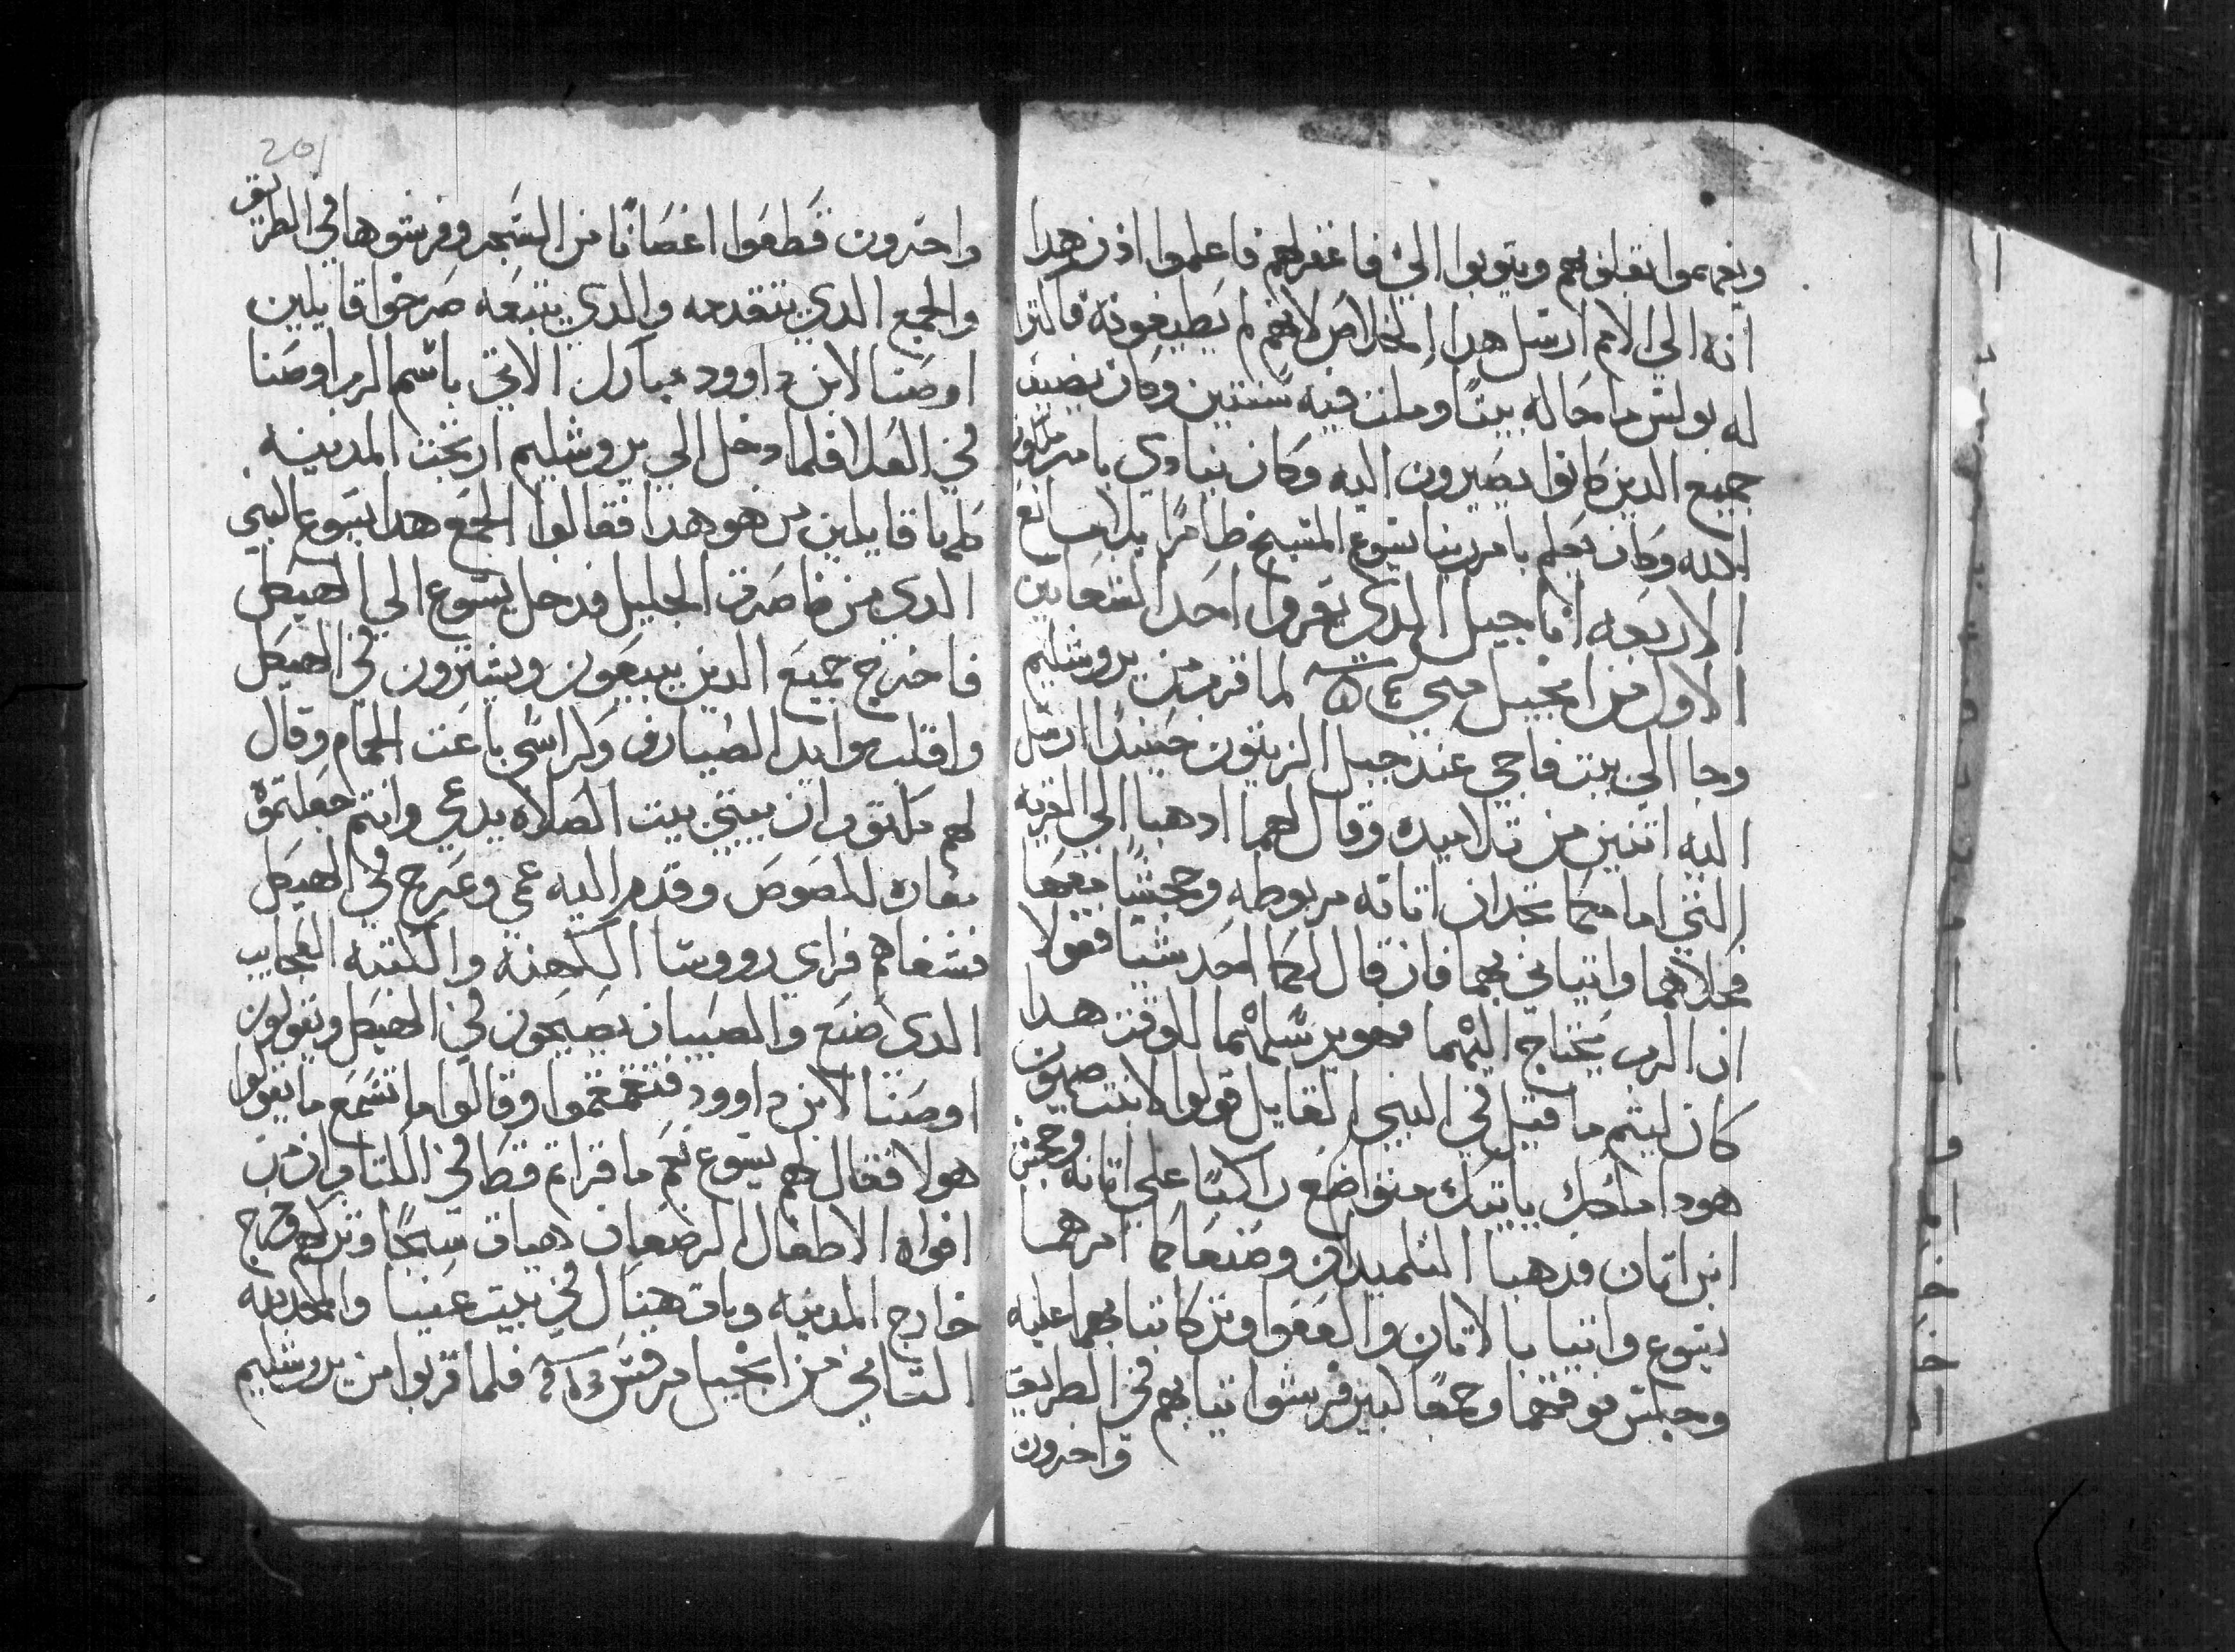 ويفهموا بقلوبهم ويتوبوا الي فاغفر لهم فاعلموا اذن هدا
انه الي الامم ارسل هدا الخلاص لانهم يطيعونه فاكترا
له بولس ما محاله بيتا ومكث فيه سنتين وكان يضيف
جميع الدين كانوا يصيرون اليه وكان ينادي بامر ملكوت
الله وكان يعلم بامر ربنا يسوع المسيح ظاهرا بلا مانع
الاربعه اناجيل الدي تقروا احد الشعانين
الاول من انجيل متي لما قرب من يروشليم
وجا الي بيت فاجي عند جبل الزيتون حينيدا ارسل
اليه اتنين من تلاميده وقال لهما ادهبا الي القريه
التي امامكما تجدان اتانه مربوطه وجحشا معها
فحلاهما واتياني بهما فان قال لكما احد شيا فقولا
ان الرب يحتاج اليهما فهو يرسلهما للوقت هدا
كان ليتم ما قيل في النبي القايل قولوا لابنت صهيون
هودا ملكك ياتيك متواضع راكبا علي اتانه وجحش
ابن اتان فدهبا التلميدان وصنعا كما امرهما
يسوع واتيا بالاتان والعفوا وتركا تيابهما عليه
وجلس فوقهما وجمعا كبير فرشوا تيابهم في الطريق
واخرون
201
واخرون قطعوا اغصانا من الشجر وفرشوها في الطريق
والجمع الدي يتقدمه والدي يتبعه صرخوا قايلين
اوصنا لابن داوود مبارك الاتي باسم الرب اوصنا
في العلا فلما دخل الي يروشليم ارتجت المدينه
كلها قايلين من هو هدا فقالوا الجمع هدا يسوع النبي
الدي من ناصرت الجليل فدخل يسوع الي الهيكل
فاخرج جميع الدين يبيعون ويشترون في الهيكل
واقلب موايد الصيارف وكراسي باعت الحمام وقال
لهم مكتوب ان بيتي بيت الصلاه يدعي وانتم جعلتموه
مغاره للصوص وقدم اليه عمي وعرج في الهيكل
فشفاهم فراي رووسا الكهنه والكتبه العجايب
الدي صنع والصبيان يصيحون في الهيكل ويقولون
اوصنا لابن داوود فتغمغموا وقالوا ما تسمع ما يقولوا
هولا فقال لهم يسوع نعم ما قراتم قط في الكتاب ان من
افواه الاطفال الرضعان هيات سبحا وتركهم وخرج
خارج المدينه وبات هينال في بيت عنيا والمجد لله
التاني من انجيل مرقس فلما قربوا من يروشليم